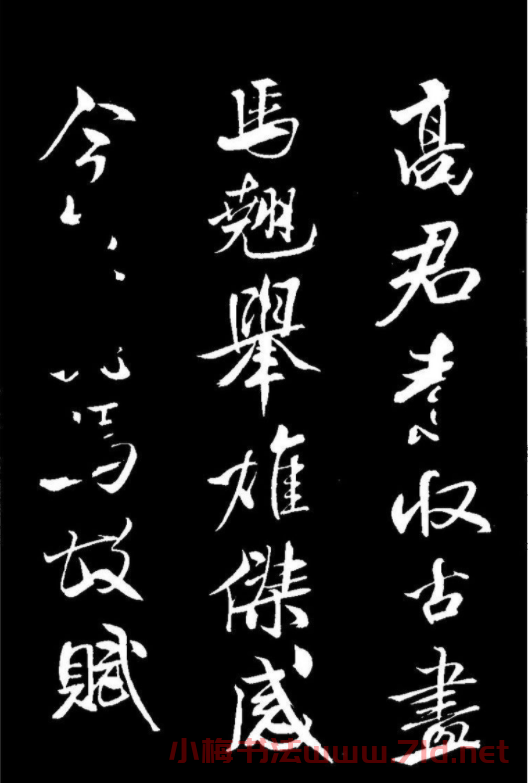 高君素收古畫
馬翹舉雄傑感
今
駑故賦
小梅书法www.7ld.net